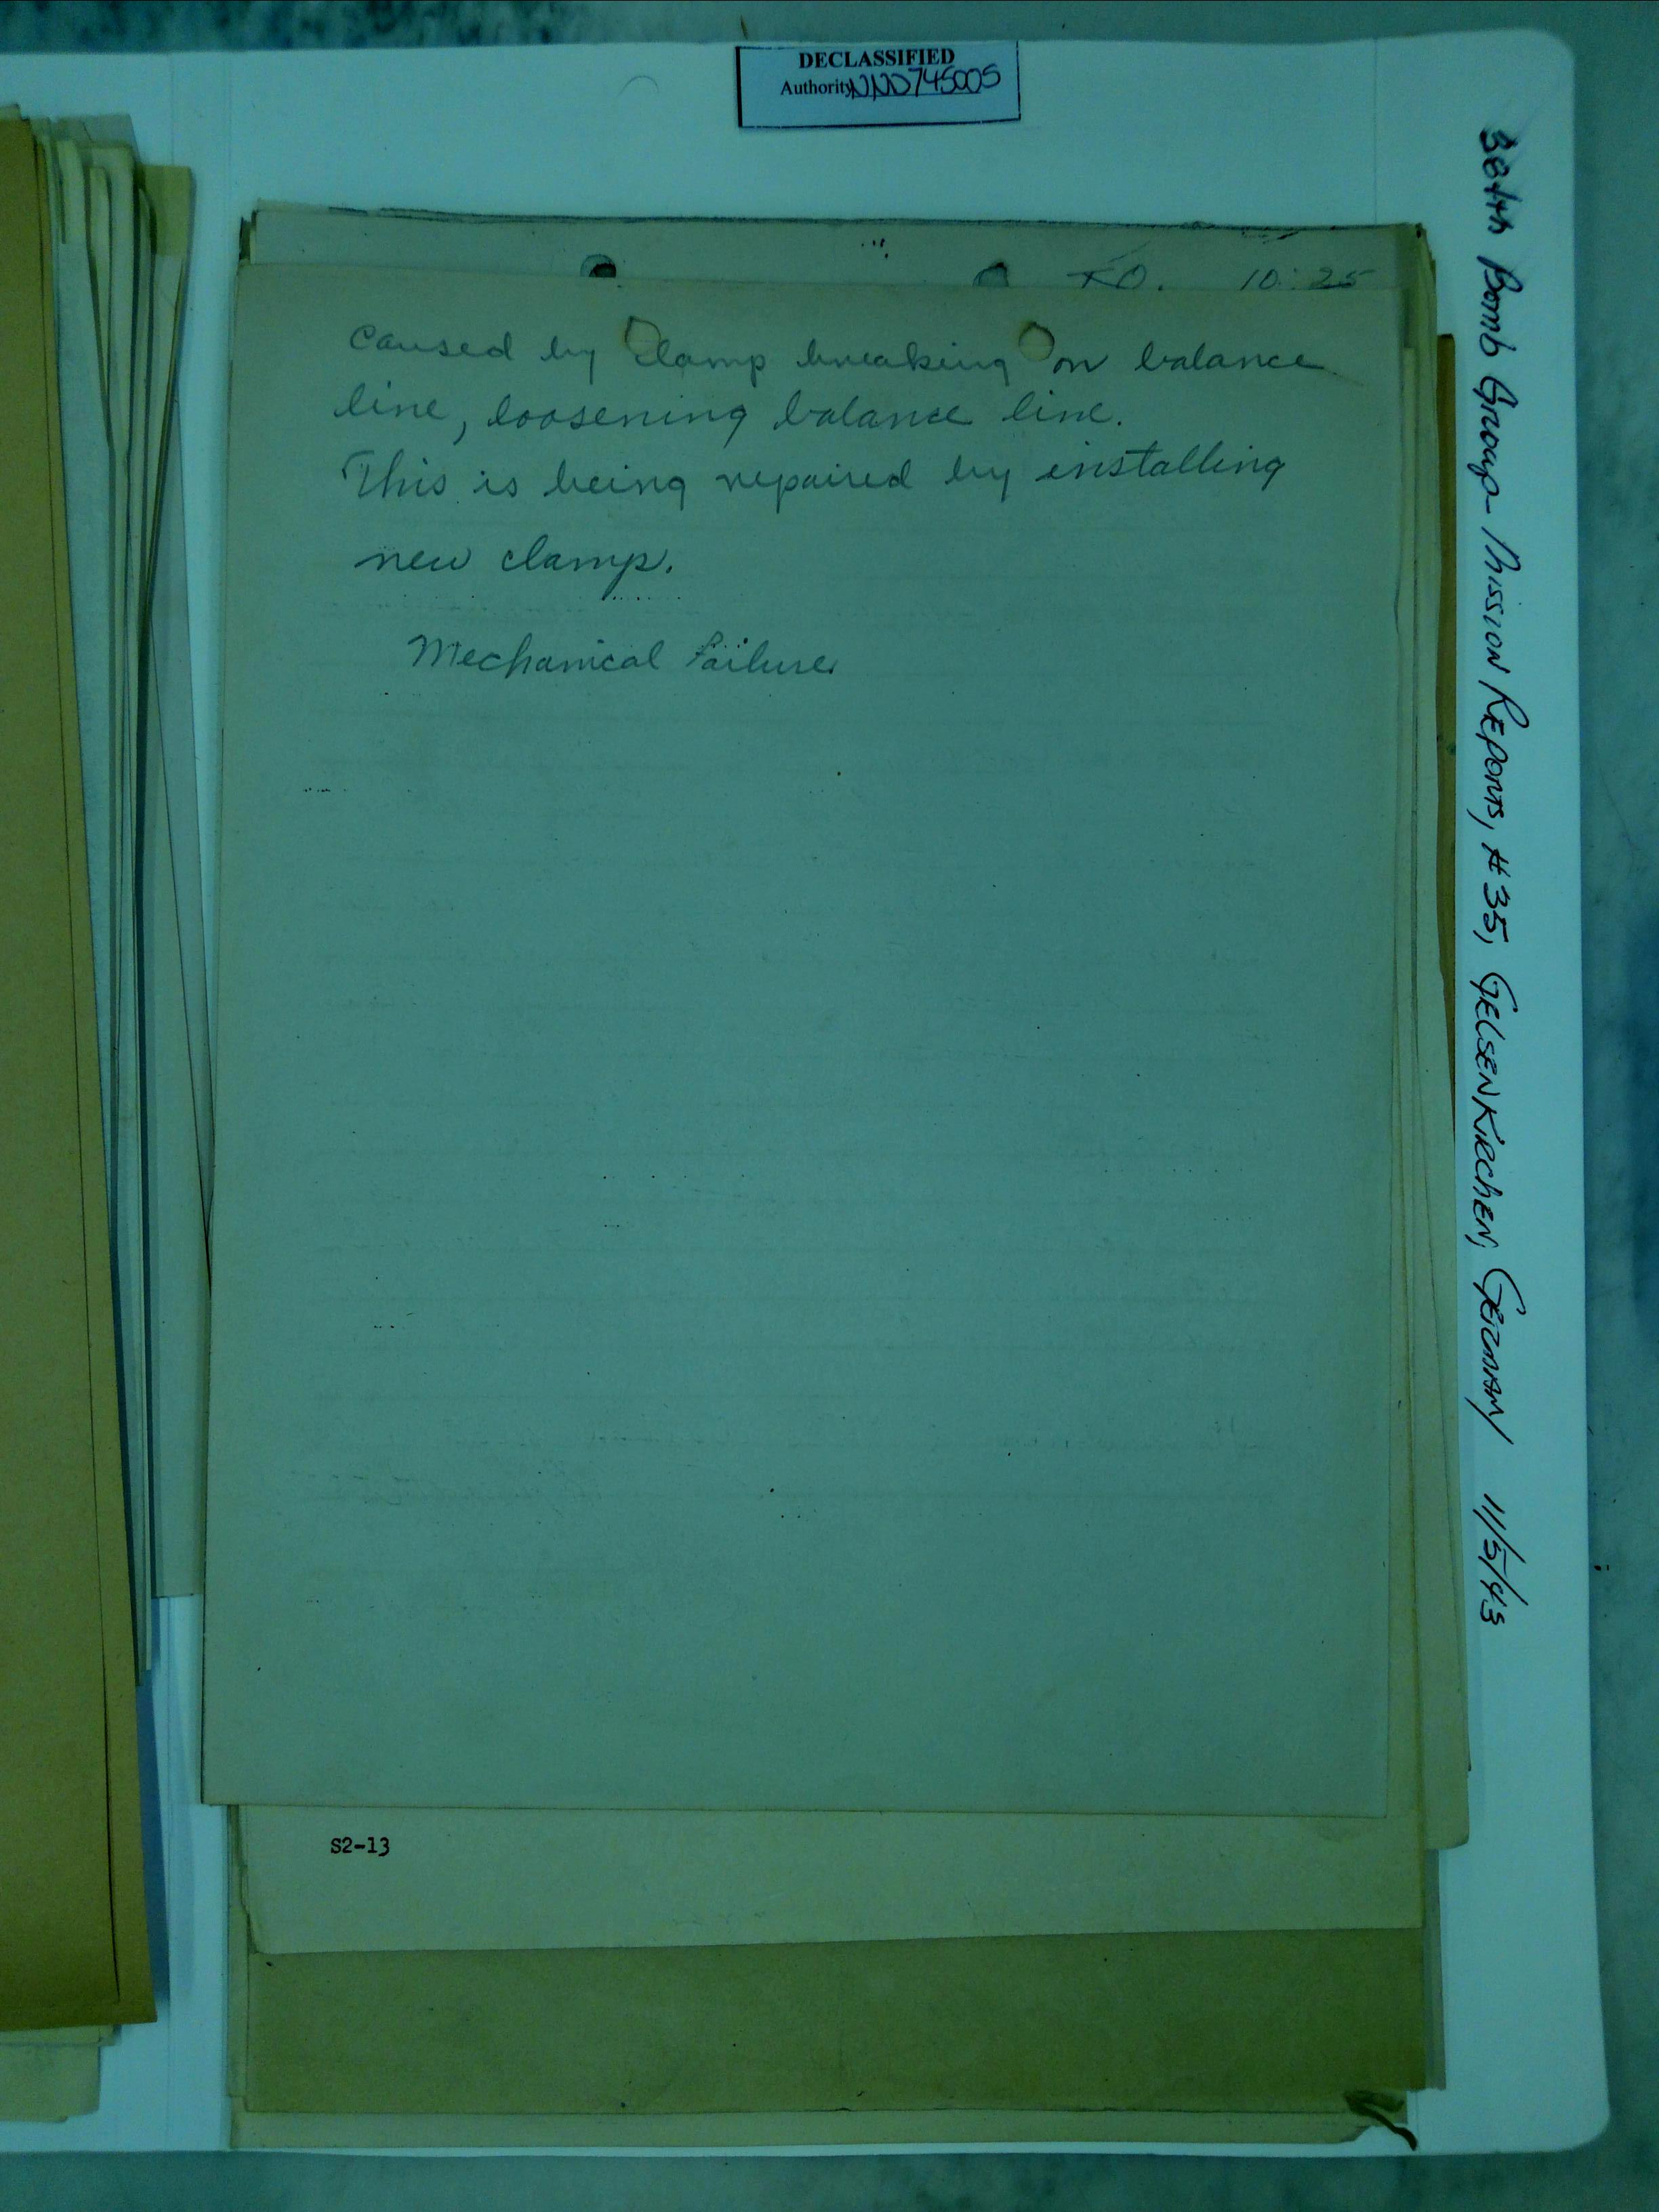 DECLASSIFIED
Authority NND745005
10:25
caused by clamp breaking on balance
line, loosening balance line.
This is being repaired by installing
new clamp.
Mechanical Failure
S2-13
384th Bomb Group Mission Reports, #35, Gelsenkirchen, Germany 11/5/43